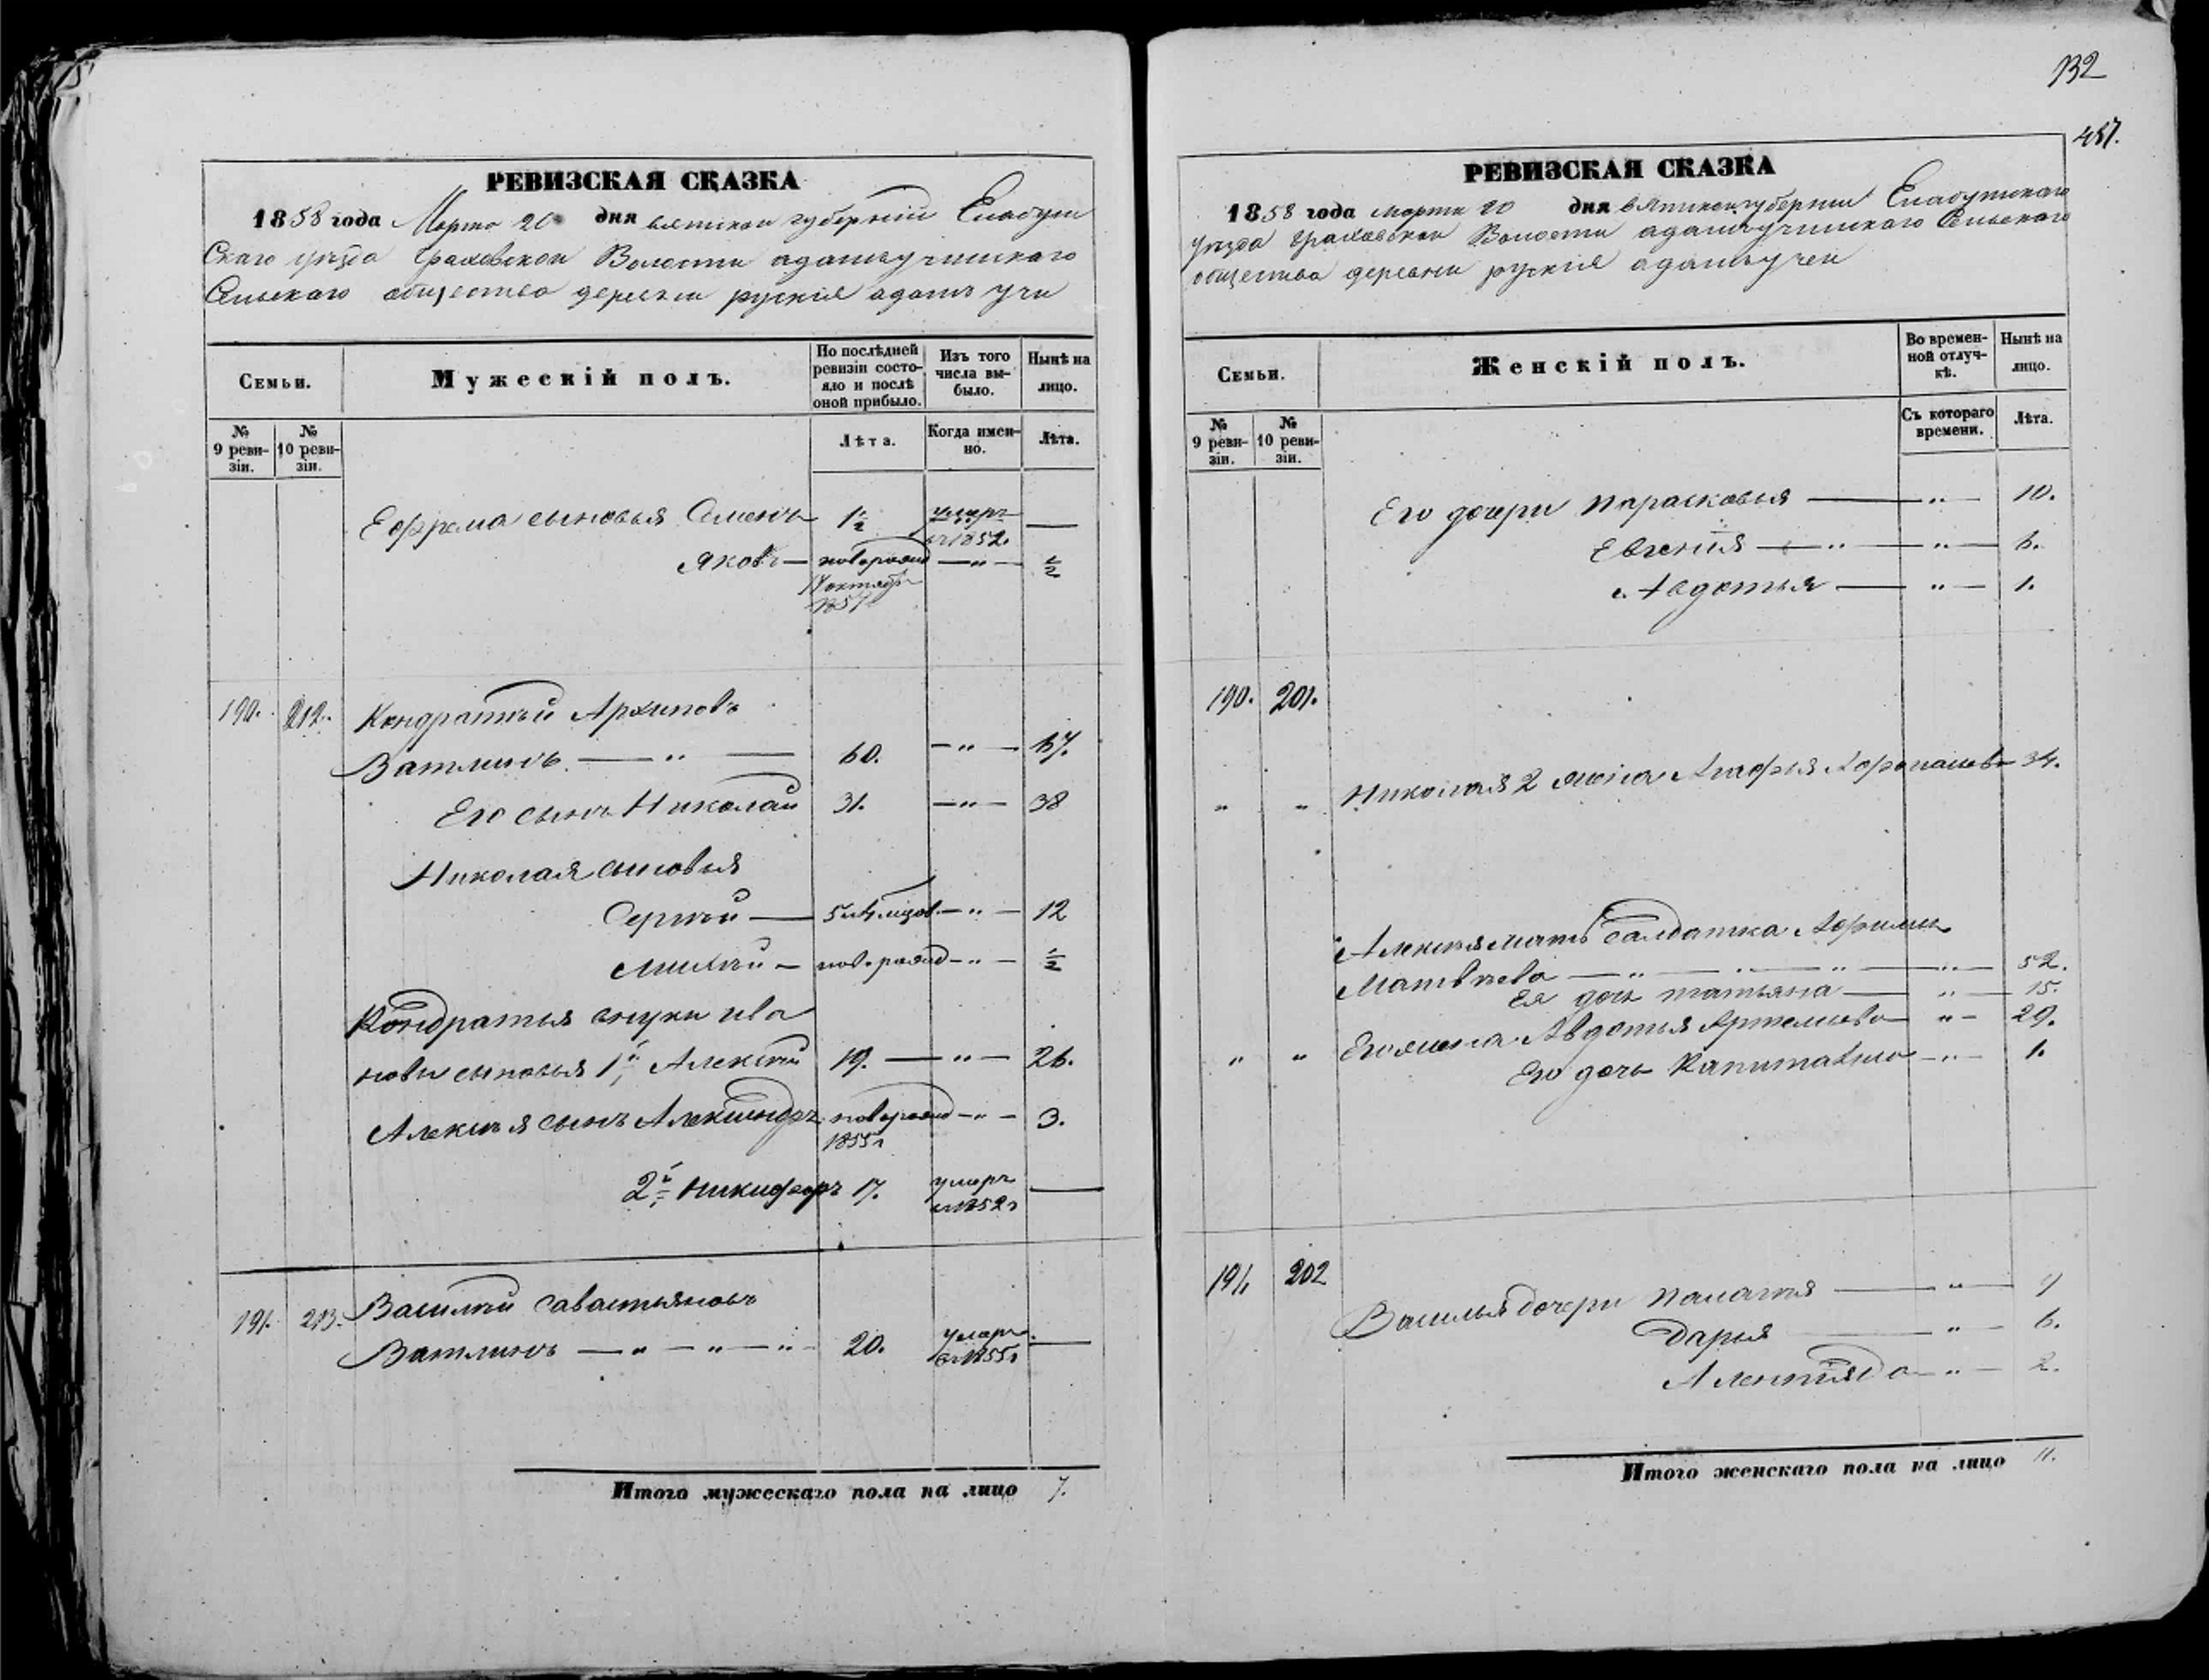 132
457.
РЕВИЗСКАЯ СКАЗКА
1858 года Марта 20 дня вятской губернии Елабуж
Скаго уезда Граховской Волости адамъучинскаго
Сельскаго общества деревни руския адамъ учи
Семьи.
Мужескій полъ.
По послѣдней ревизіи состояло и послѣ оной прибыло.
Изъ того числа выбыло.
Нынѣ на лицо.
№ 9 ревизіи.
№ 10 ревизіи.
Лѣта.
Когда именно.
Лѣта.
Ефрема сыновья Семенъ 1 1/2 умеръ в 1852 —
Яковъ — новорожд — " — 1/2
18 октября
1857
190. 212. Кондратий Архиповъ
Ватлинъ — " — 60. — " — 67.
Его сынъ Николай 31. — " — 38
Николая сыновья
Сергѣй — 5 — " — 12
новорожд — " — 1/2
Кондратья внуки ива
новы сыновья 1й Алексѣй 19. — " — 26.
Алексѣя сынъ Александръ новорожд — " — 3.
1855г
2й Никифоръ 17. умеръ в 1852г —
191. 213. Василий Савастьяновъ
Ватлинъ — " — " — " — 20. умеръ в 1855г —
Итого мужескаго пола на лицо 7.
РЕВИЗСКАЯ СКАЗКА
1858 года марта 20 дня вятской губернии Елабужскаго
уезда Граховской Волости адамъучинскаго Сельскаго
общества деревни руския адамъучеи
Семьи.
Женскій полъ.
Во временной отлучкѣ.
Нынѣ на лицо.
№ 9 ревизіи.
№ 10 ревизіи.
Съ котораго времени.
Лѣта.
Его дочери Парасковья — " — 10.
Евгения — " — " — 6.
Авдотья — " — 1.
190. 201.
" " Николая 2 жена Агафья 34.
Алексѣя мать Салдатка
Матвѣева — " — " — " — " — 52.
Ея дочь татьяна — " — 15.
" " Его жена Авдотья Артемьева " — 29.
Его дочь Капиталина — " — 1.
191. 202
Василья дочери Палагия — "
Дарья — " — 6.
— " — 2.
Итого женскаго пола на лицо 11.